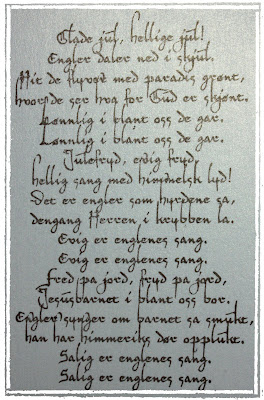 Glade jul, hellige jul!
Engler daler ned i skjul.
Hit de flyver med paradis grønt,
hvor de ser hva for Gud er skjønt.
Lønnlig i blant oss de går.
Lønnlig i blant oss de går.
Julefryd, evig fryd,
hellig sang med himmelsk lyd!
Det er engler som hyrdene så,
dengang Herren i krybben lå.
Evig er englenes sang.
Evig er englenes sang.
Fred på jord, fryd på jord,
Jesusbarnet i blant oss bor.
Engler synger om barnet så smukt,
han har himmeriks dør opplukt.
Salig er englenes sang.
Salig er englenes sang.